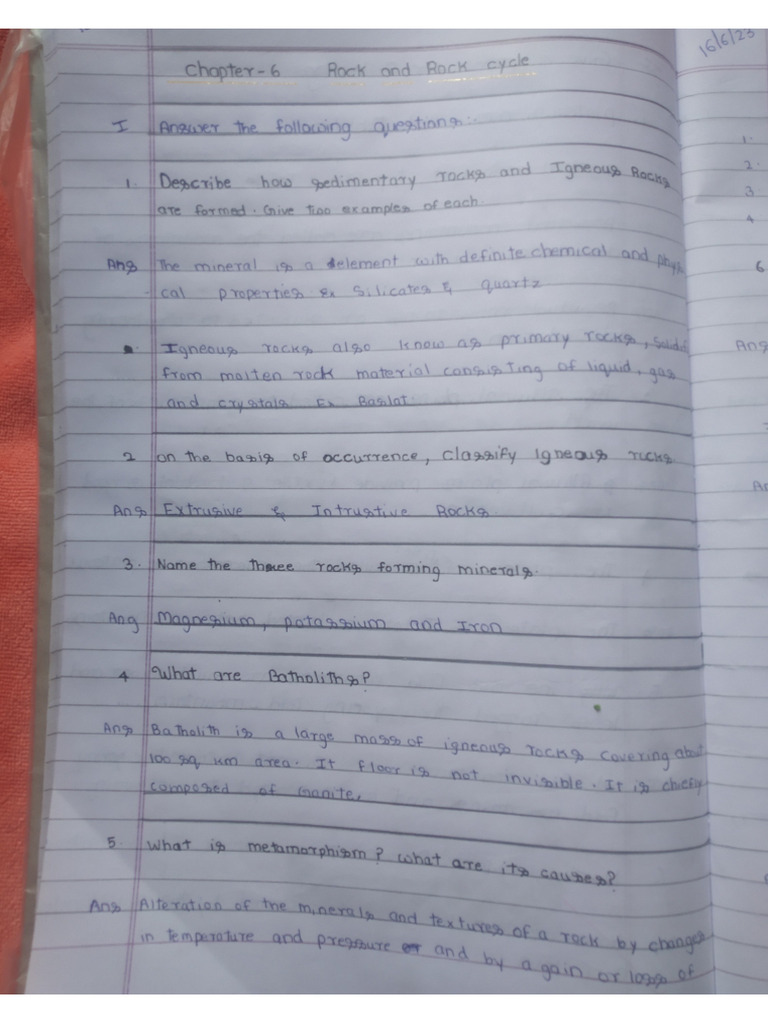 16/6/23
Chapter-6 Rock and Rock cycle
I Answer the following questions:-
1. Describe how sedimentary rocks and Igneous Rocks
are formed. Give two examples of each.
Ans The mineral is a element with definite chemical and physi
cal properties Ex Silicates & quartz
Igneous rocks also know as primary rocks, Solidi
from molten rock material consisting of liquid, gas
and crystals Ex Baslat
2 on the basis of occurrence, classify Igneous rocks.
Ans Extrusive & Intrustive Rocks.
3. Name the three rocks forming minerals.
Ans Magnesium, potassium and Iron
4 What are Batholiths?
Ans Batholith is a large mass of igneous rocks covering about
100 sq km area. It floor is not invisible. It is chiefly
composed of Granite.
5. What is metamorphism? What are its causes?
Ans Alteration of the minerals and textures of a rock by changes
in temperature and pressure and by a gain or loss of
1.
2.
3
4
6
Ans